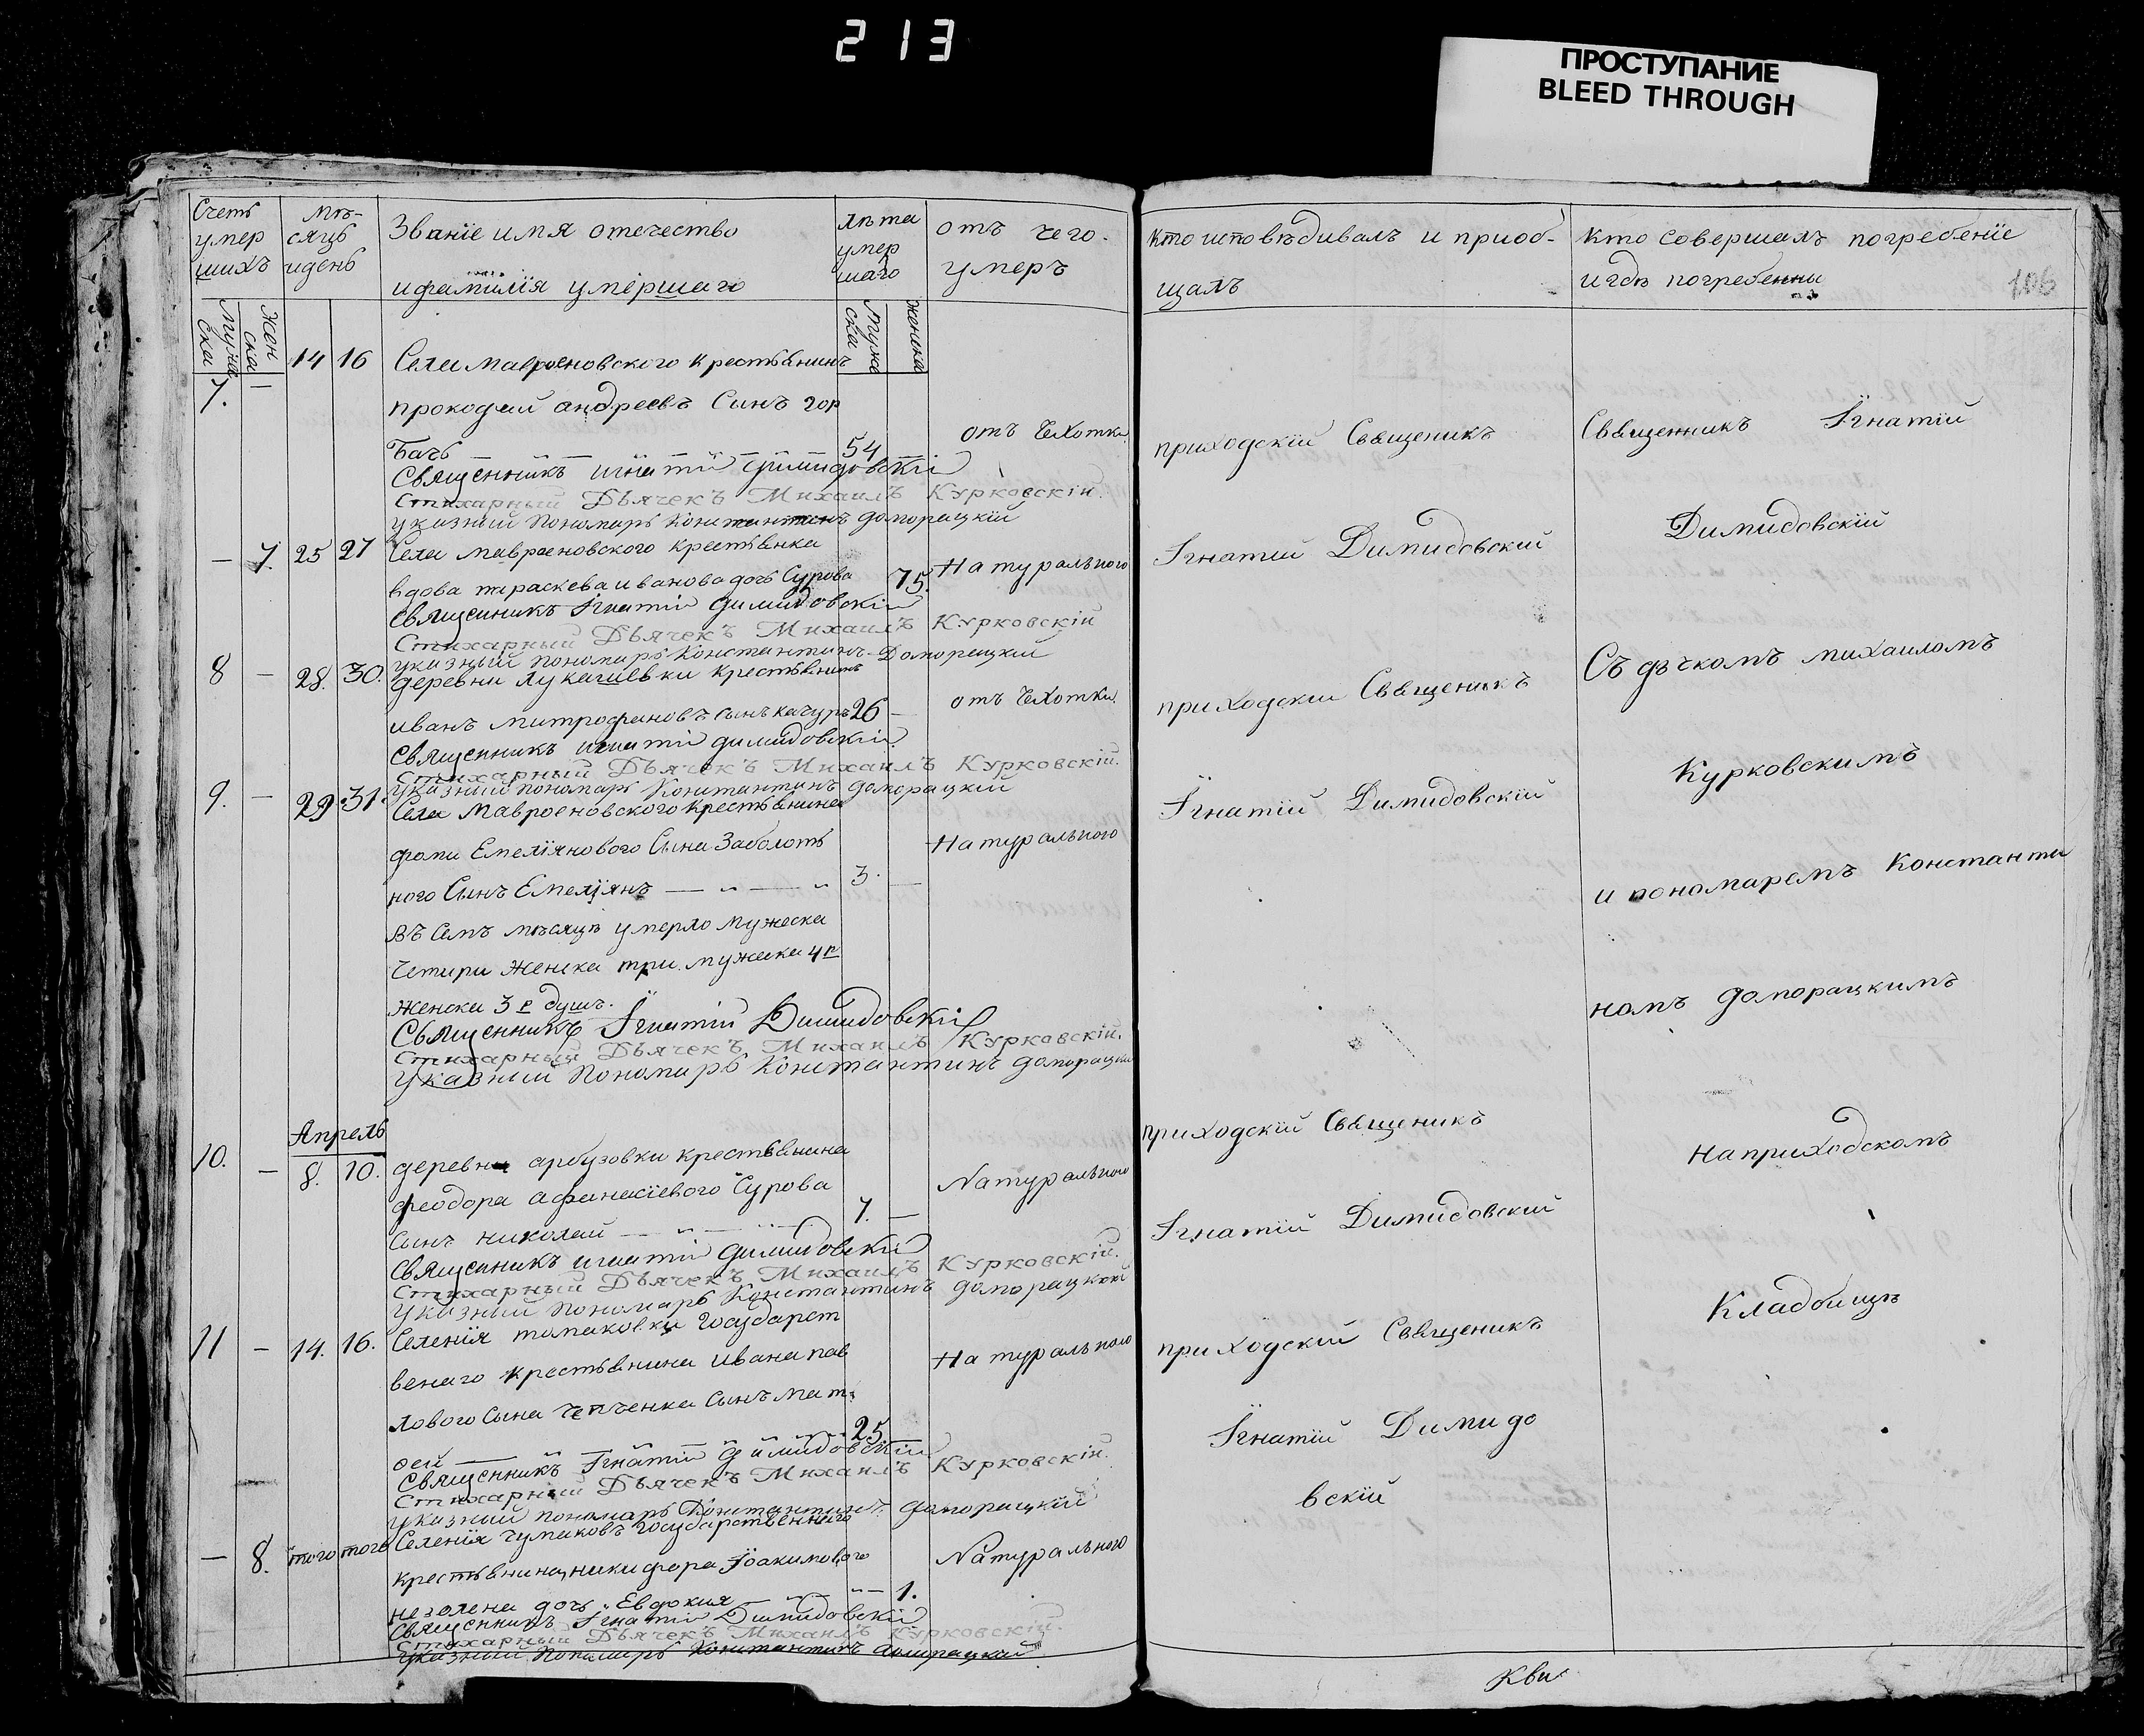 213
ПРОСТУПАНИЕ
BLEED THROUGH
Счетъ умер шихъ
Мѣ- сяцъ идень
Званїе имя отечество
ифамилїя умершаго
лѣта умер шаго
отъ чего.
умеръ
кто исповѣдивалъ и приоб-
щалъ
кто совершалъ погребенїе
и гдѣ погребенны
106
Мужеска
Женска
Мужеска
Женска
7. — 14 16 Села Мавроеновского крестьянинъ
прокофий андреевъ Сынъ гор
бачь 54 отъ чахотки
приходскїй Священикъ
Священникъ Їгнатїй
Священникъ игнатїй димидовскїй
Стихарный Дьячекъ Михаилъ Курковскїй.
указный пономарь Константинъ доморацкїй
— 7. 25 27 Села мавроеновского крестьянка
вдова параскева иванова дочь Сурова 75. Натурального
Їгнатїй Димидовский
Димидовскїй
Священникъ Їгнатїй димидовскїй
Стихарный Дьячекъ Михаилъ Курковскїй
указный пономарь Константинъ Доморацкїй
8 — 28. 30. деревни лукашевки крестьянинъ
иванъ митрофановъ сынъ качуръ 26 — отъ чахотки.
приходскїй Священикъ
Съ дьчкомъ михаиломъ
Священникъ игнатїй димидовскїй
Стихарный Дьячекъ Михаилъ Курковскїй.
указный пономарь Константинъ доморацкїй
9. — 29. 31. Села Мавроеновского крестьянина
фомы Емелїянового Сына Заболоть Натурального
ного Сынъ Емелїянъ 3. —
Їгнатїй Димидовскїй
Курковскимъ
и пономаремъ Константи
номъ доморацкимъ
Въ Семъ мѣсяцѣ умерло мужеска
четири женска три. мужеска 4ре
женска 3и душъ.
Священникъ Їгнатїй Димидовскїй
Стихарный Дьячекъ Михаилъ Курковскїй.
указный Пономарь Константинъ доморацкїй
Апрель
10. — 8. 10. деревни арбузовки крестьянина
феодора афанасїевого Сурова Натурального
сынъ николай 7. —
приходскїй Священикъ
Їгнатїй Димидовский
На приходскомъ
Священникъ игнатїй димидовскїй
Стихарный Дьячекъ Михаилъ Курковскїй.
указный пономарь Константинъ доморацкїй
11 — 14. 16. Селенїя томаковки государст
венаго крестьянина ивана пав Натурального
лового сына чепченка сынъ мат.
ѳей 25.
приходскїй Священикъ
Їгнатїй Димидо
вскїй
Кладбищѣ
Священникъ Їгнатїй димидовскїй
Стихарный Дьячекъ Михаилъ Курковскїй.
указный пономарь Константинъ. доморацкїй
— 8. того того Селенїя чумаковъ государственнаго
крестьянина никифора Їоакимового Натурального
дочь Евдокия 1.
Священникъ Їгнатїй Димидовскїй
Стихарный Дьячекъ Михаилъ Курковскїй.
указный Пономарь Константинъ доморацкїй
Кви